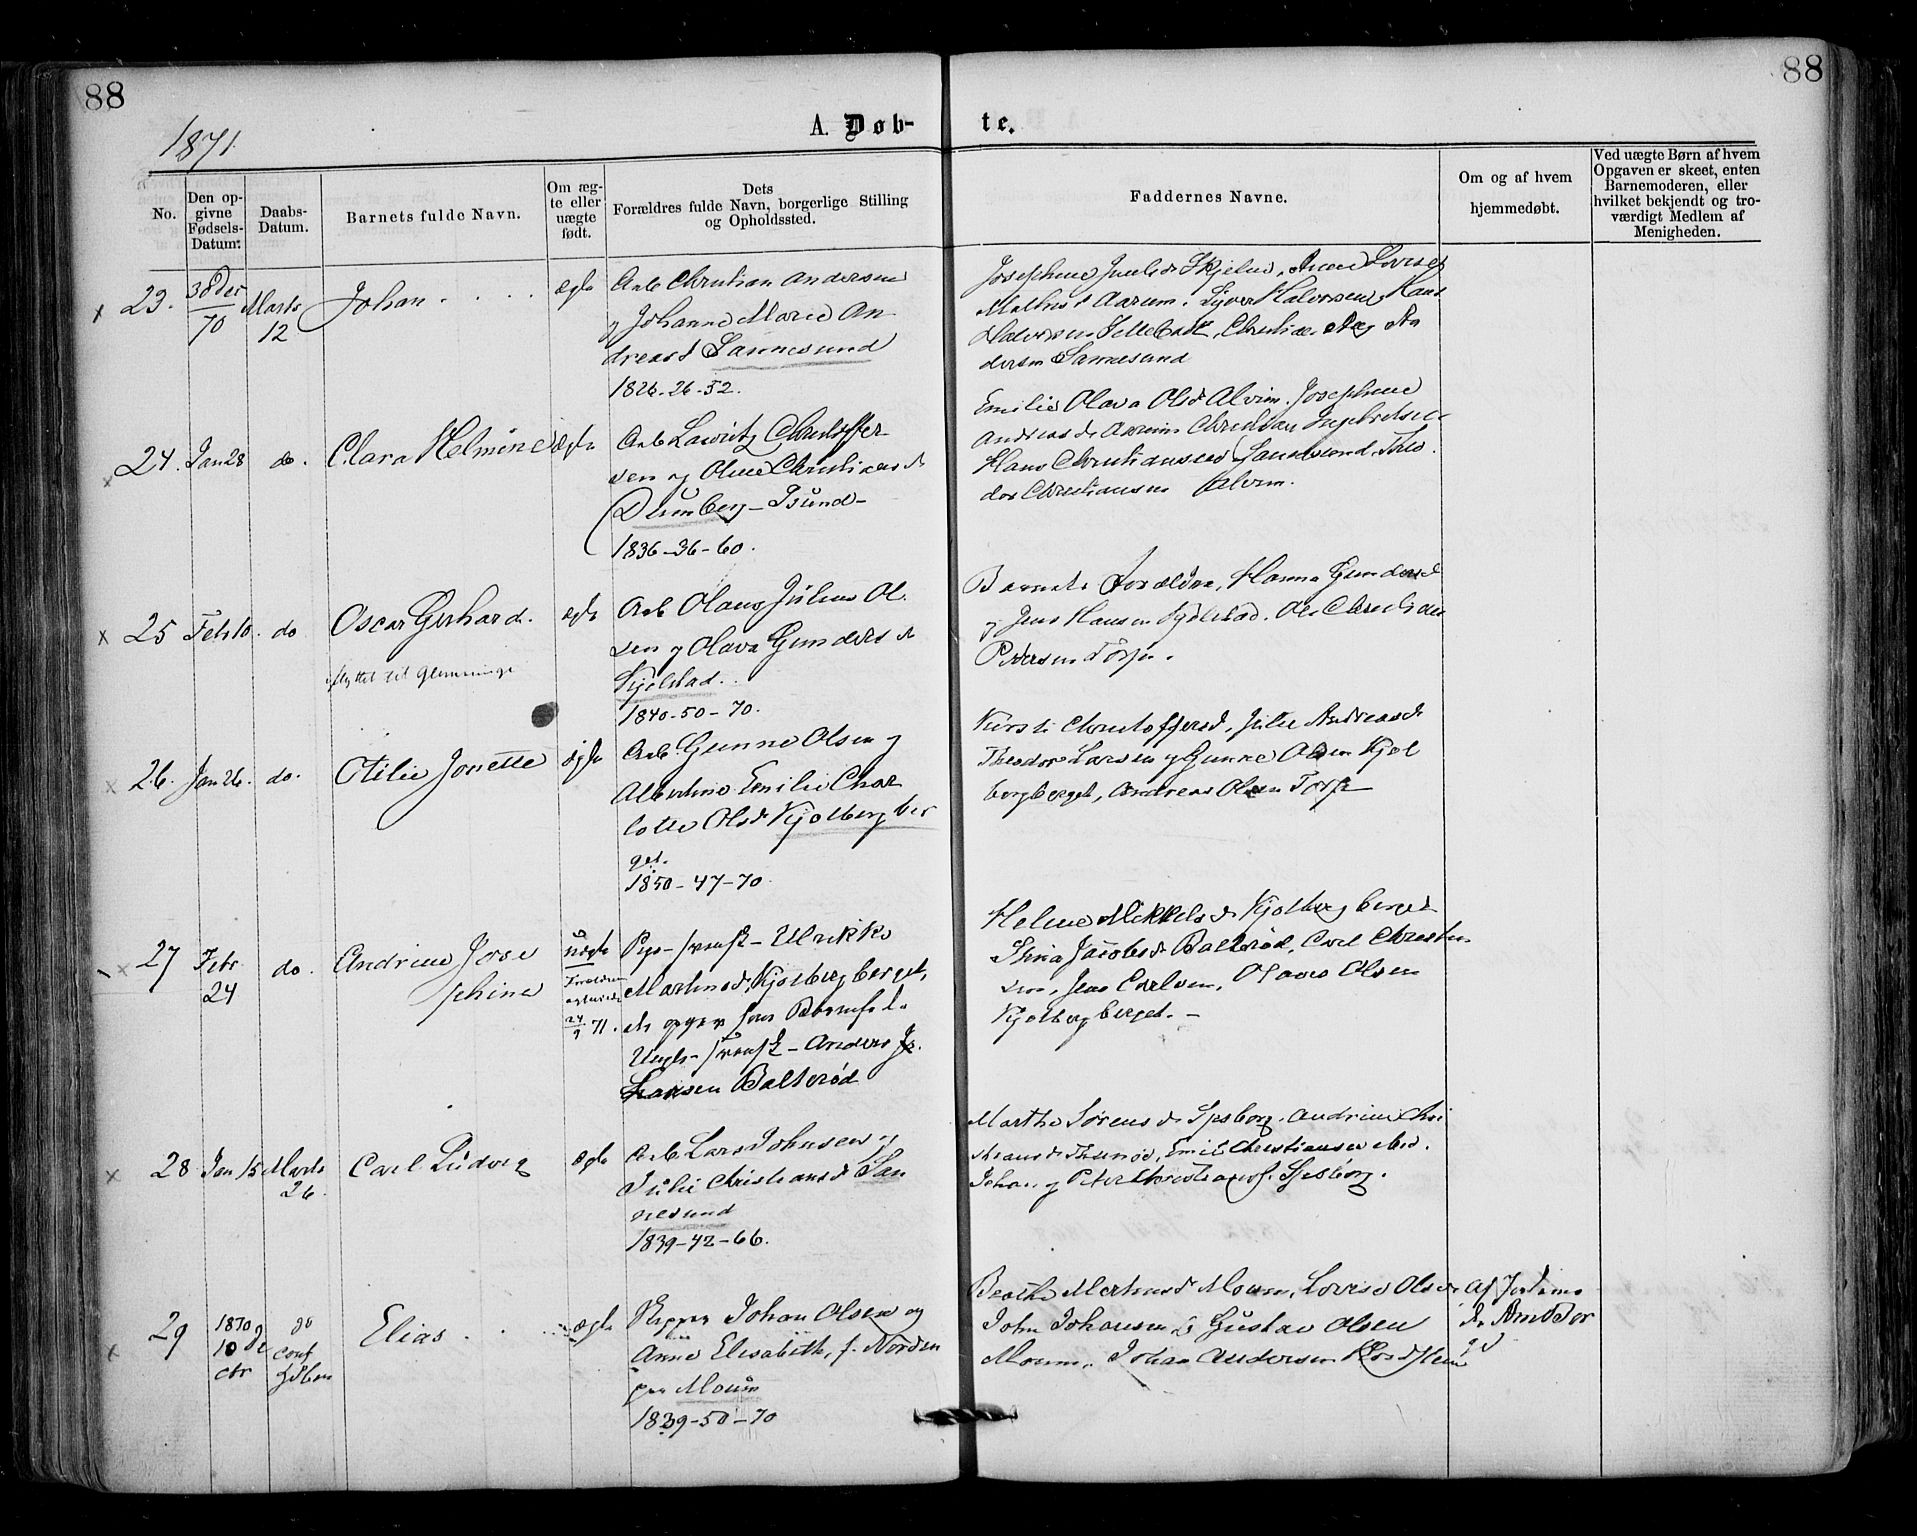 88
88
1871.
A. Døb-
te.
No.
Den op-
givne
Fødsels-
Datum:
Daabs-
Datum.
Barnets fulde Navn.
Om æg-
te eller
uægte
født.
Dets
Forældres fulde Navn, borgerlige Stilling
og Opholdssted.
Faddernes Navne.
Om og af hvem
hjemmedøbt.
Ved uægte Børn af hvem
Opgaven er skeet, enten
Barnemoderen, eller
hvilket bekjendt og tro-
værdigt Medlem af
Menigheden.
23.
70
Marts
12
Johan
ægte
Arb Christian Andersen
og Johanne Marie An
dreasd Sannesund
1826-26-52.
Josephine
Aarum. Halvorsen, Hans
Halvorsen Christian
dersen Sannesund
24. Jan 28 do. Clara Helmine ægte
Arb Lawritz Christoffer
sen og Oline Christiansd
1836-36-60.
Emilie Olava Olsd Alvim. Josephine
Andreasd Aarum Christian Ingebretsen
Hans Christiansen Sannesund, Theo
dor Christiansen Alvim.
25 Feb 10. do Oscar Gerhard. ægte
flyttet til Glemminge
Arb Olaus Julius Ol
sen og Olava Gundersd
Kjølstad.
1840-50-70.
Barnets Forældre, Hanna Gundersd
og Jens Hansen Kjølstad. Ole Christian
Pedersen Torp.
26. Jan 26. do. Otilie Jonette ægte
Arb. Gunne Olsen og
Albertine Emilie Char
lotte Olsd Kjølbergber
get.
1850-47-70
Kirsti Christoffersd, Julie Andreasd
Theodor Larsen og Gunne Olsen Kjøl
bergberget, Andreas Olsen Torp
27 Febr
24
do.
Andrine Jose
phine
uægte
24/9 71.
Pige- svensk- Ulrikke
Martinsd, Kjølbergberget,
opgav som Barnefader
Ungk- svensk- Anders J.
Larsen Balterød
Helene Mikkelsd Kjølbergberget
Stina Jacobsd Balterød, Carl Christen
sen, Jens Carlsen, Olaves Olsen
Kjølbergberget. -
28 Jan 15 Marts
26.
Carl Ludvig
ægte
Arb Lars Johnsen og
Julie Christiansd San
nesund
1839-42-66.
Marthe Sørensd Spsborg. Andrine Chri
stiansd Thunø, Emil Christiansen
Johan og Peter Christiansen Spsborg.
29
1870
10 De
cbr
do
conf
Elias
ægte
Skipper Johan Olsen og
Anne Elisabeth, f. Norden
Moum
1839-50-70
Beathe Martinsd Moum, Lovise Olsen
John Johansen og Gustav Olsen
Moum, Johan Andersen
Af Jordemo
der